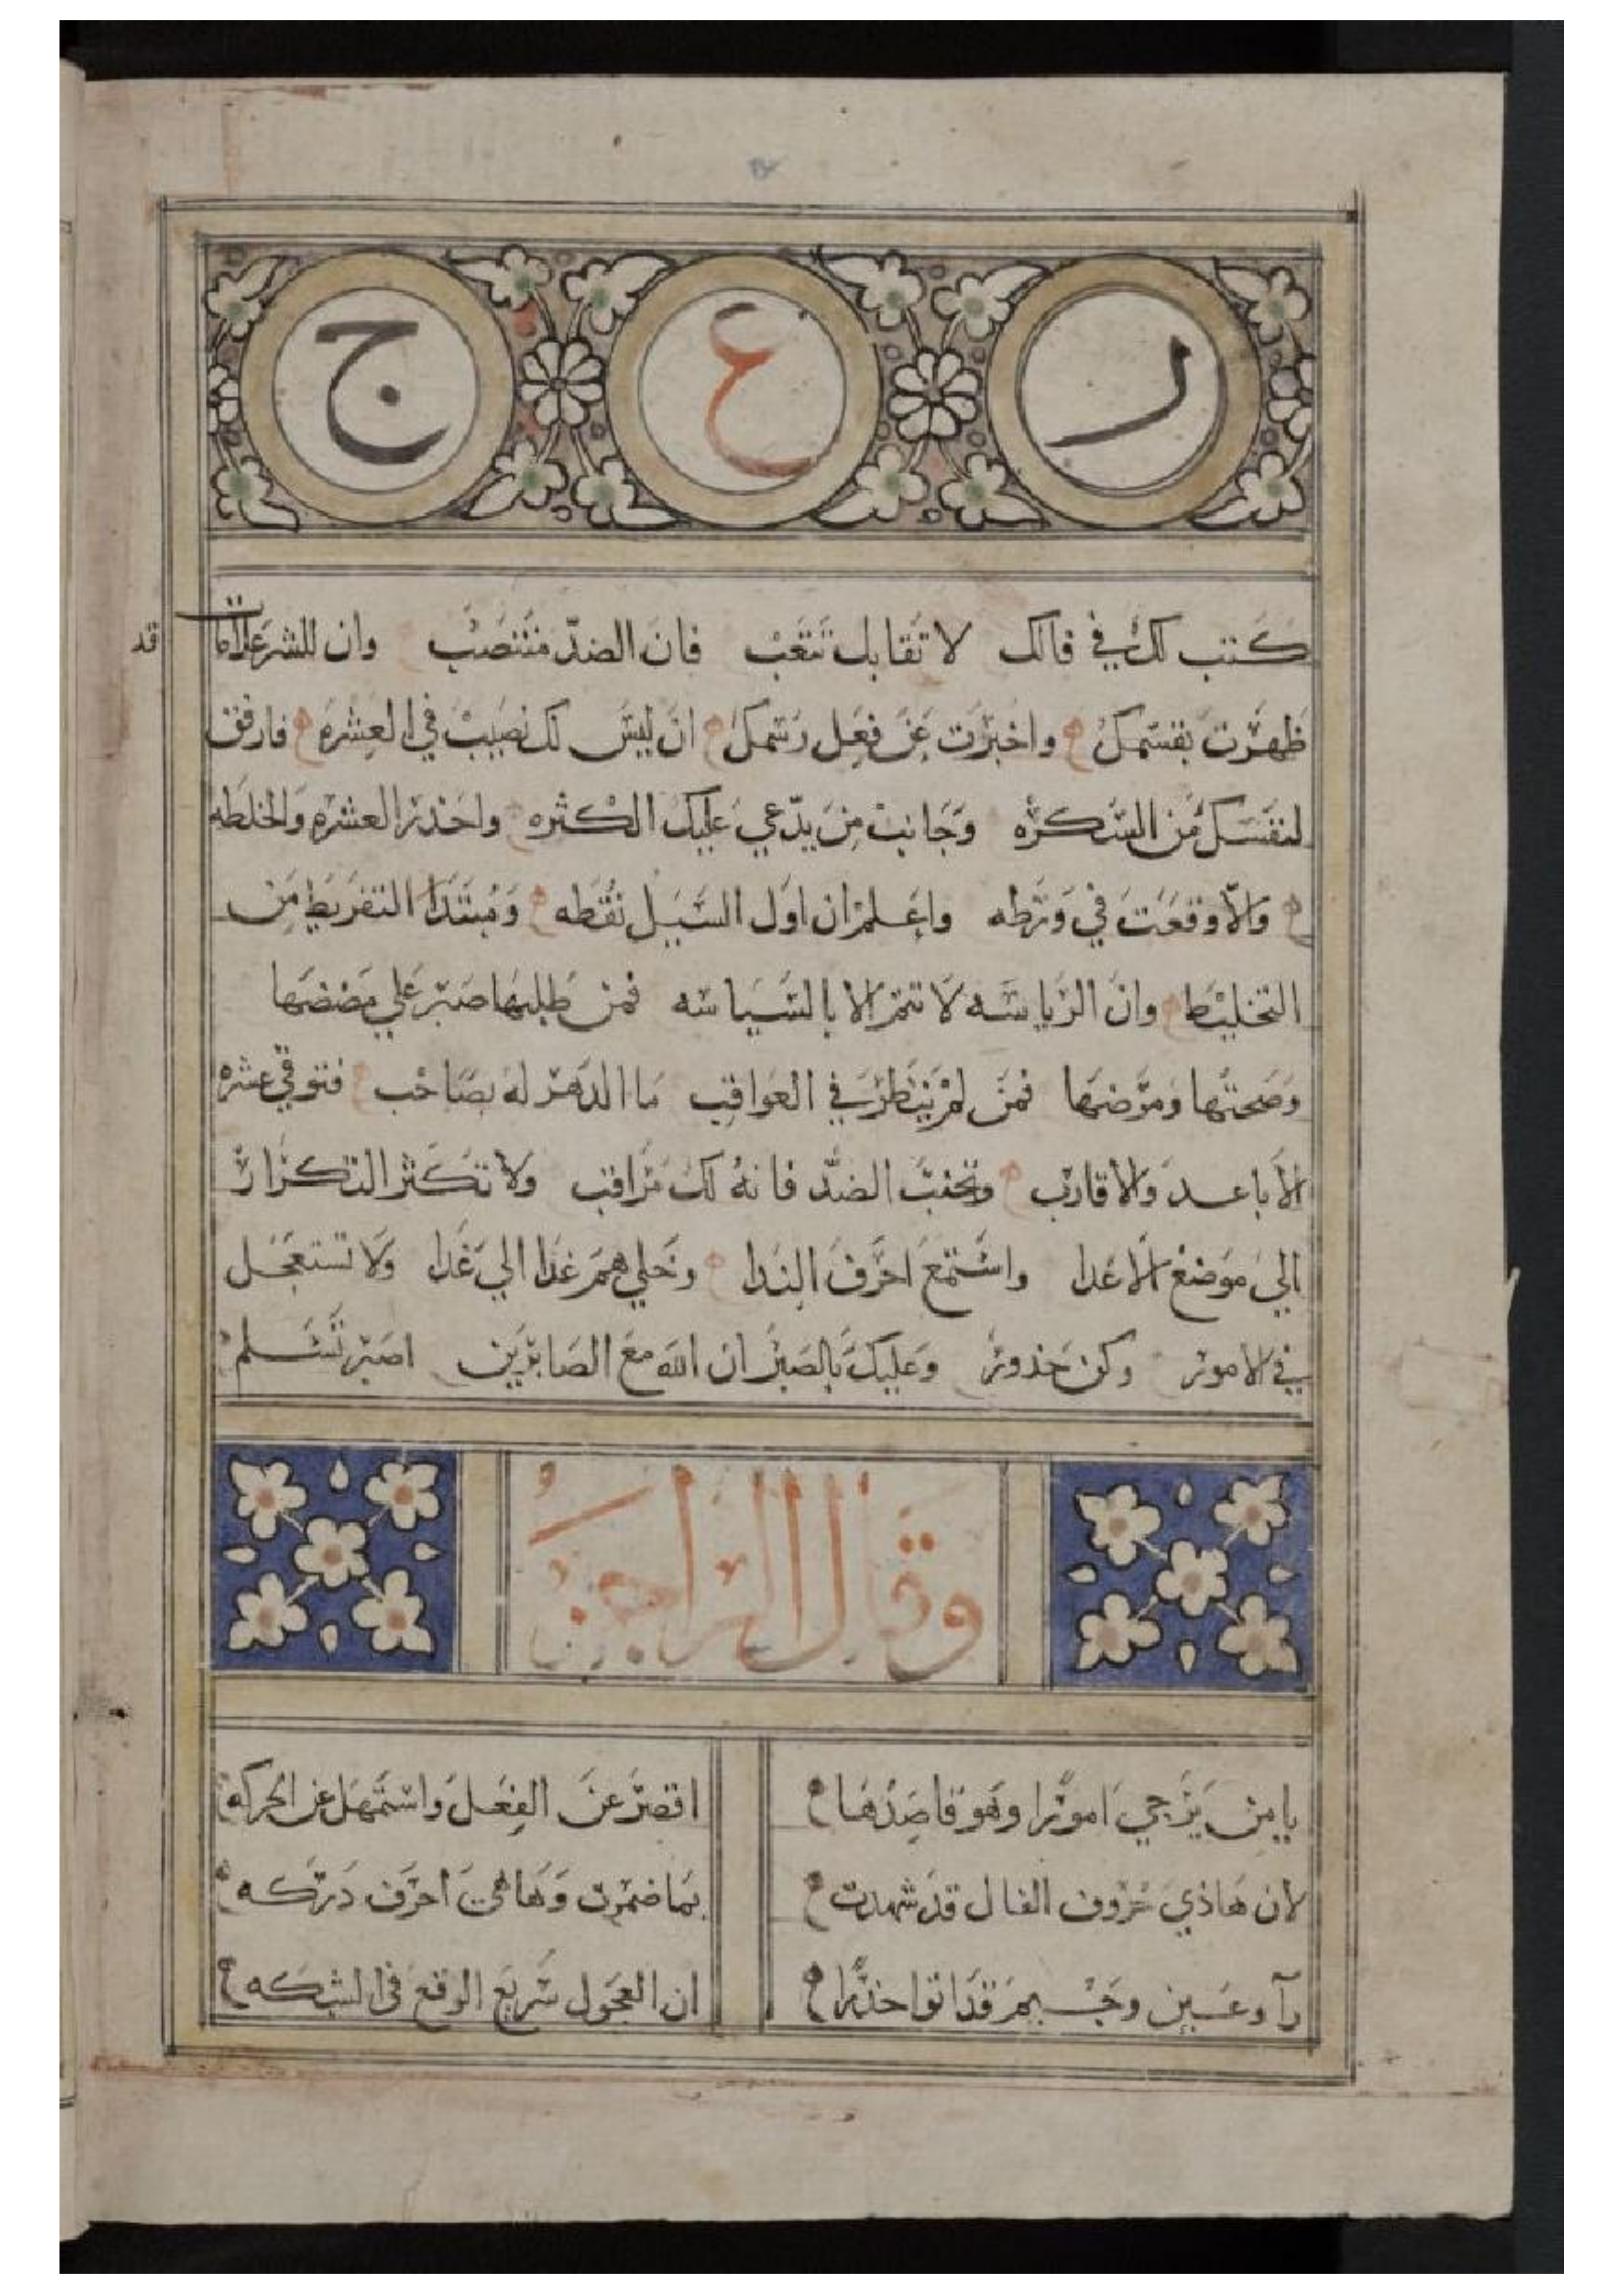 ر ع ج
كتب لك في فالك لا تقابل تتعب فان الضد منتصب وان للشر علامات قد
ظهرت بقسمك واخبرت عن فعل رسمك ان ليس لك نصيب في العشره فارفق
لنفسك من السكره وجانب من يدعي عليك الكثره واحذر العشره والخلطه
والا وقعت في ورطه واعلم ان اول السيل نقطه ومبتدا التفريط من
التخليط وان الرياسه لا تتم الا بالسياسه فمن طلبها صبر علي مضضها
وصحتها ومرضها فمن لم ينظر في العواقب ما الدهر له بصاحب فتوقي عشره
الاباعد والاقارب وتجنب الضد فانه لك مراقب ولا تكثر التكرار
الي موضع الاعدا واستمع احرف الندا وخلي همم غدا الي غدا ولا تستعجل
في الامور وكن حذور وعليك بالصبر ان الله مع الصابرين اصبر تسلم
وقال الراجز
يا من يرجي امورا وهو قاصدها اقصر عن الفعل واستمهل عن الحركه
لان هاذي حروف الفال قد شهدت بما ضمرت وها هي احرف دركه
رآ وعين وجيم قد اتوا حذرا ان العجول سريع الوقع في الشبكه